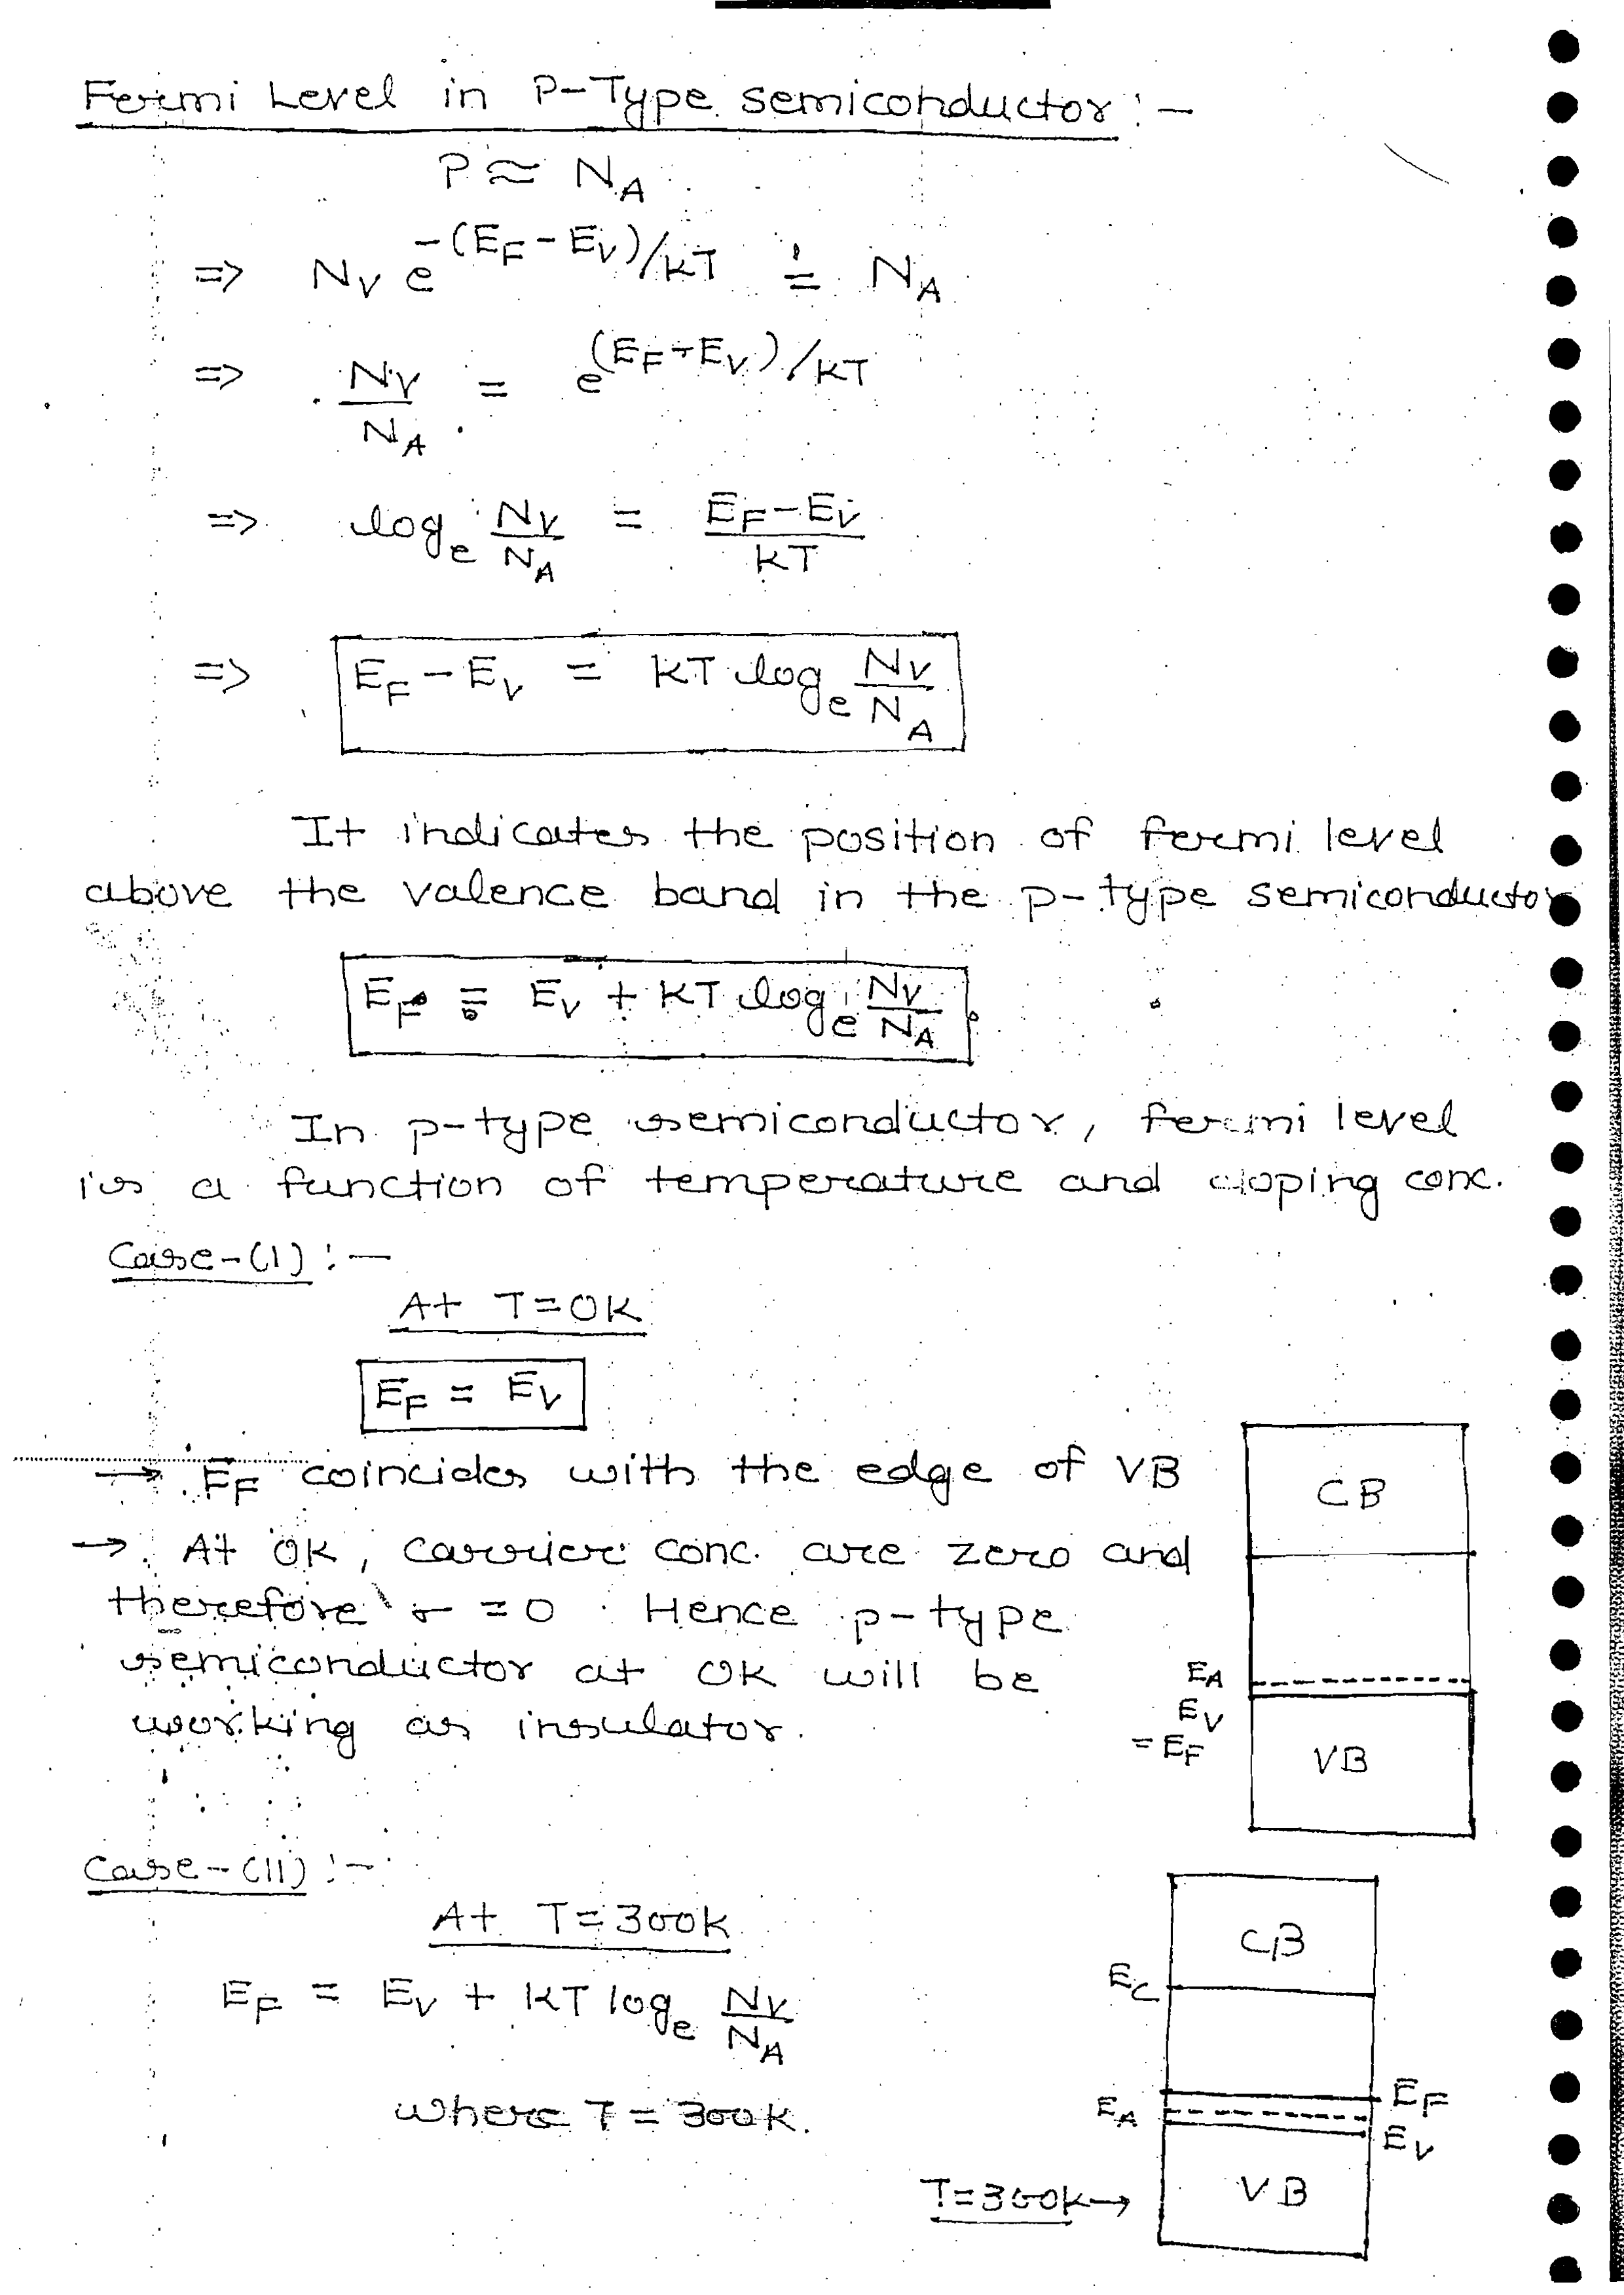 Fermi Level in P-Type semiconductor :-
P ≈ N_A
=> N_V e^{-(E_F - E_V)/KT} = N_A
=> N_V/N_A = e^{(E_F - E_V)/KT}
=> log_e N_V/N_A = (E_F - E_V)/KT
=> E_F - E_V = KT log_e N_V/N_A
It indicates the position of fermi level
above the valence band in the p-type semiconductor
E_F = E_V + KT log_e N_V/N_A
In p-type semiconductor, fermi level
is a function of temperature and doping conc.
Case-(I) :-
At T=0K
E_F = E_V
→ E_F coincides with the edge of VB
→ At 0K, carrier conc. are zero and
therefore σ = 0. Hence p-type
semiconductor at 0K will be
working as insulator.
CB
E_A
E_V
= E_F
VB
Case-(II) :-
At T=300K
E_F = E_V + KT log_e N_V/N_A
where T=300K.
CB
E_C
E_F
E_A
E_V
VB
T=300K→